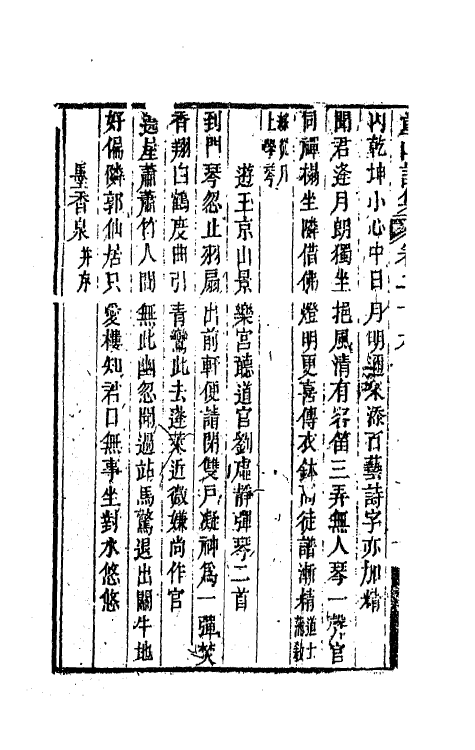 內乾坤小心中日月明 通 添百藝詩字亦加精
聞君逢月朗獨坐挹風清有客笛三弄無人琴一聲官
同禪榻坐隣借佛燈明更喜傳衣鉢 徒譜漸精道士
上學琴
遊王京山景樂宮聽道官劉虛靜彈琴二首
到門琴忽止羽扇出前軒便請閉雙戶凝神爲一彈焚
香翔白鶴度曲引青鸞此去蓬萊近微嫌尚作官
遶屋蕭蕭竹人間無此幽忽聞過站馬驚退出關牛地
好偏隣郭仙居只愛樓知君口無事坐對水悠悠
墨香泉并序